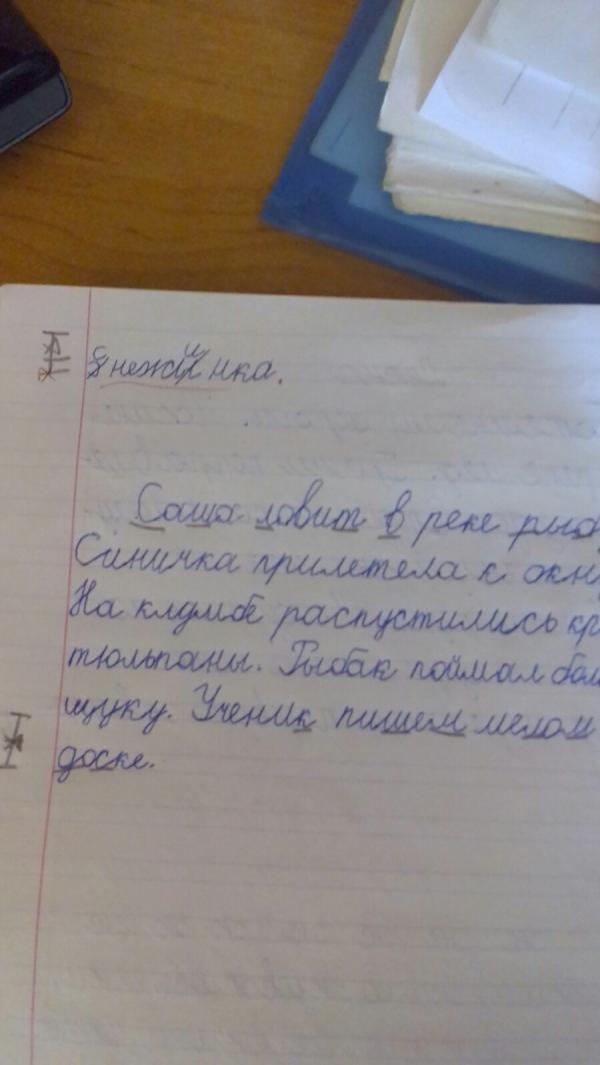 Снежинка.
Саша ловит в реке рыб
Синичка прилетела к окн
На клумбе распустились кр
тюльпаны. Рыбак поймал бол
щуку. Ученик пишет мелом
доске.